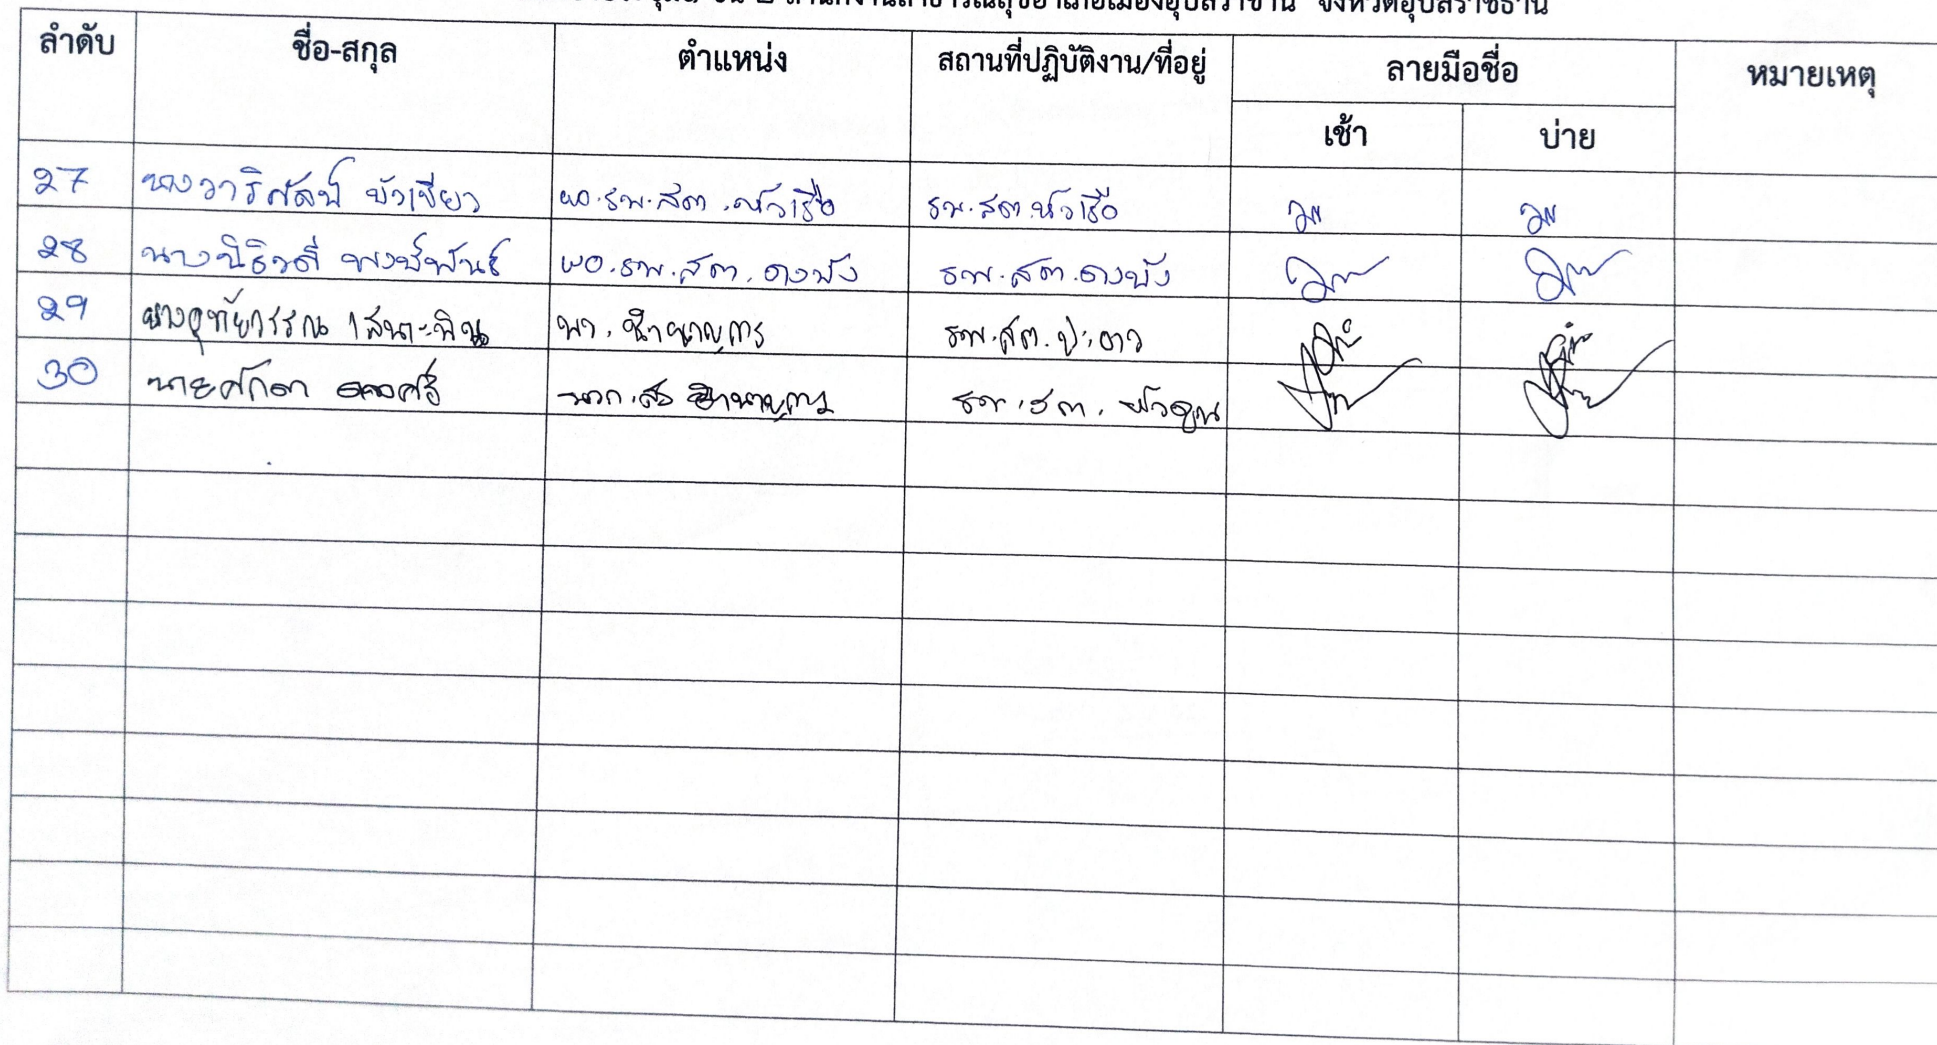 ชั้น ๒ สำนักงานสาธารณสุขอำเภอเมืองอุบลราชธานี จังหวัดอุบลราชธานี
ลำดับ ชื่อ-สกุล ตำแหน่ง สถานที่ปฏิบัติงาน/ที่อยู่ ลายมือชื่อ หมายเหตุ
เช้า บ่าย
27 นางวาริศัลป์ บัวเขียว ผอ.รพ.สต.หัวเรือ รพ.สต.หัวเรือ
28 นางนิธิวดี พงษ์พันธ์ ผอ.รพ.สต.ดงบัง รพ.สต.ดงบัง
29 นางอุทัยวรรณ พว.ชำนาญการ รพ.สต.ปะอาว
30 นายศักดา นวก.สธ ชำนาญการ รพ.สต.